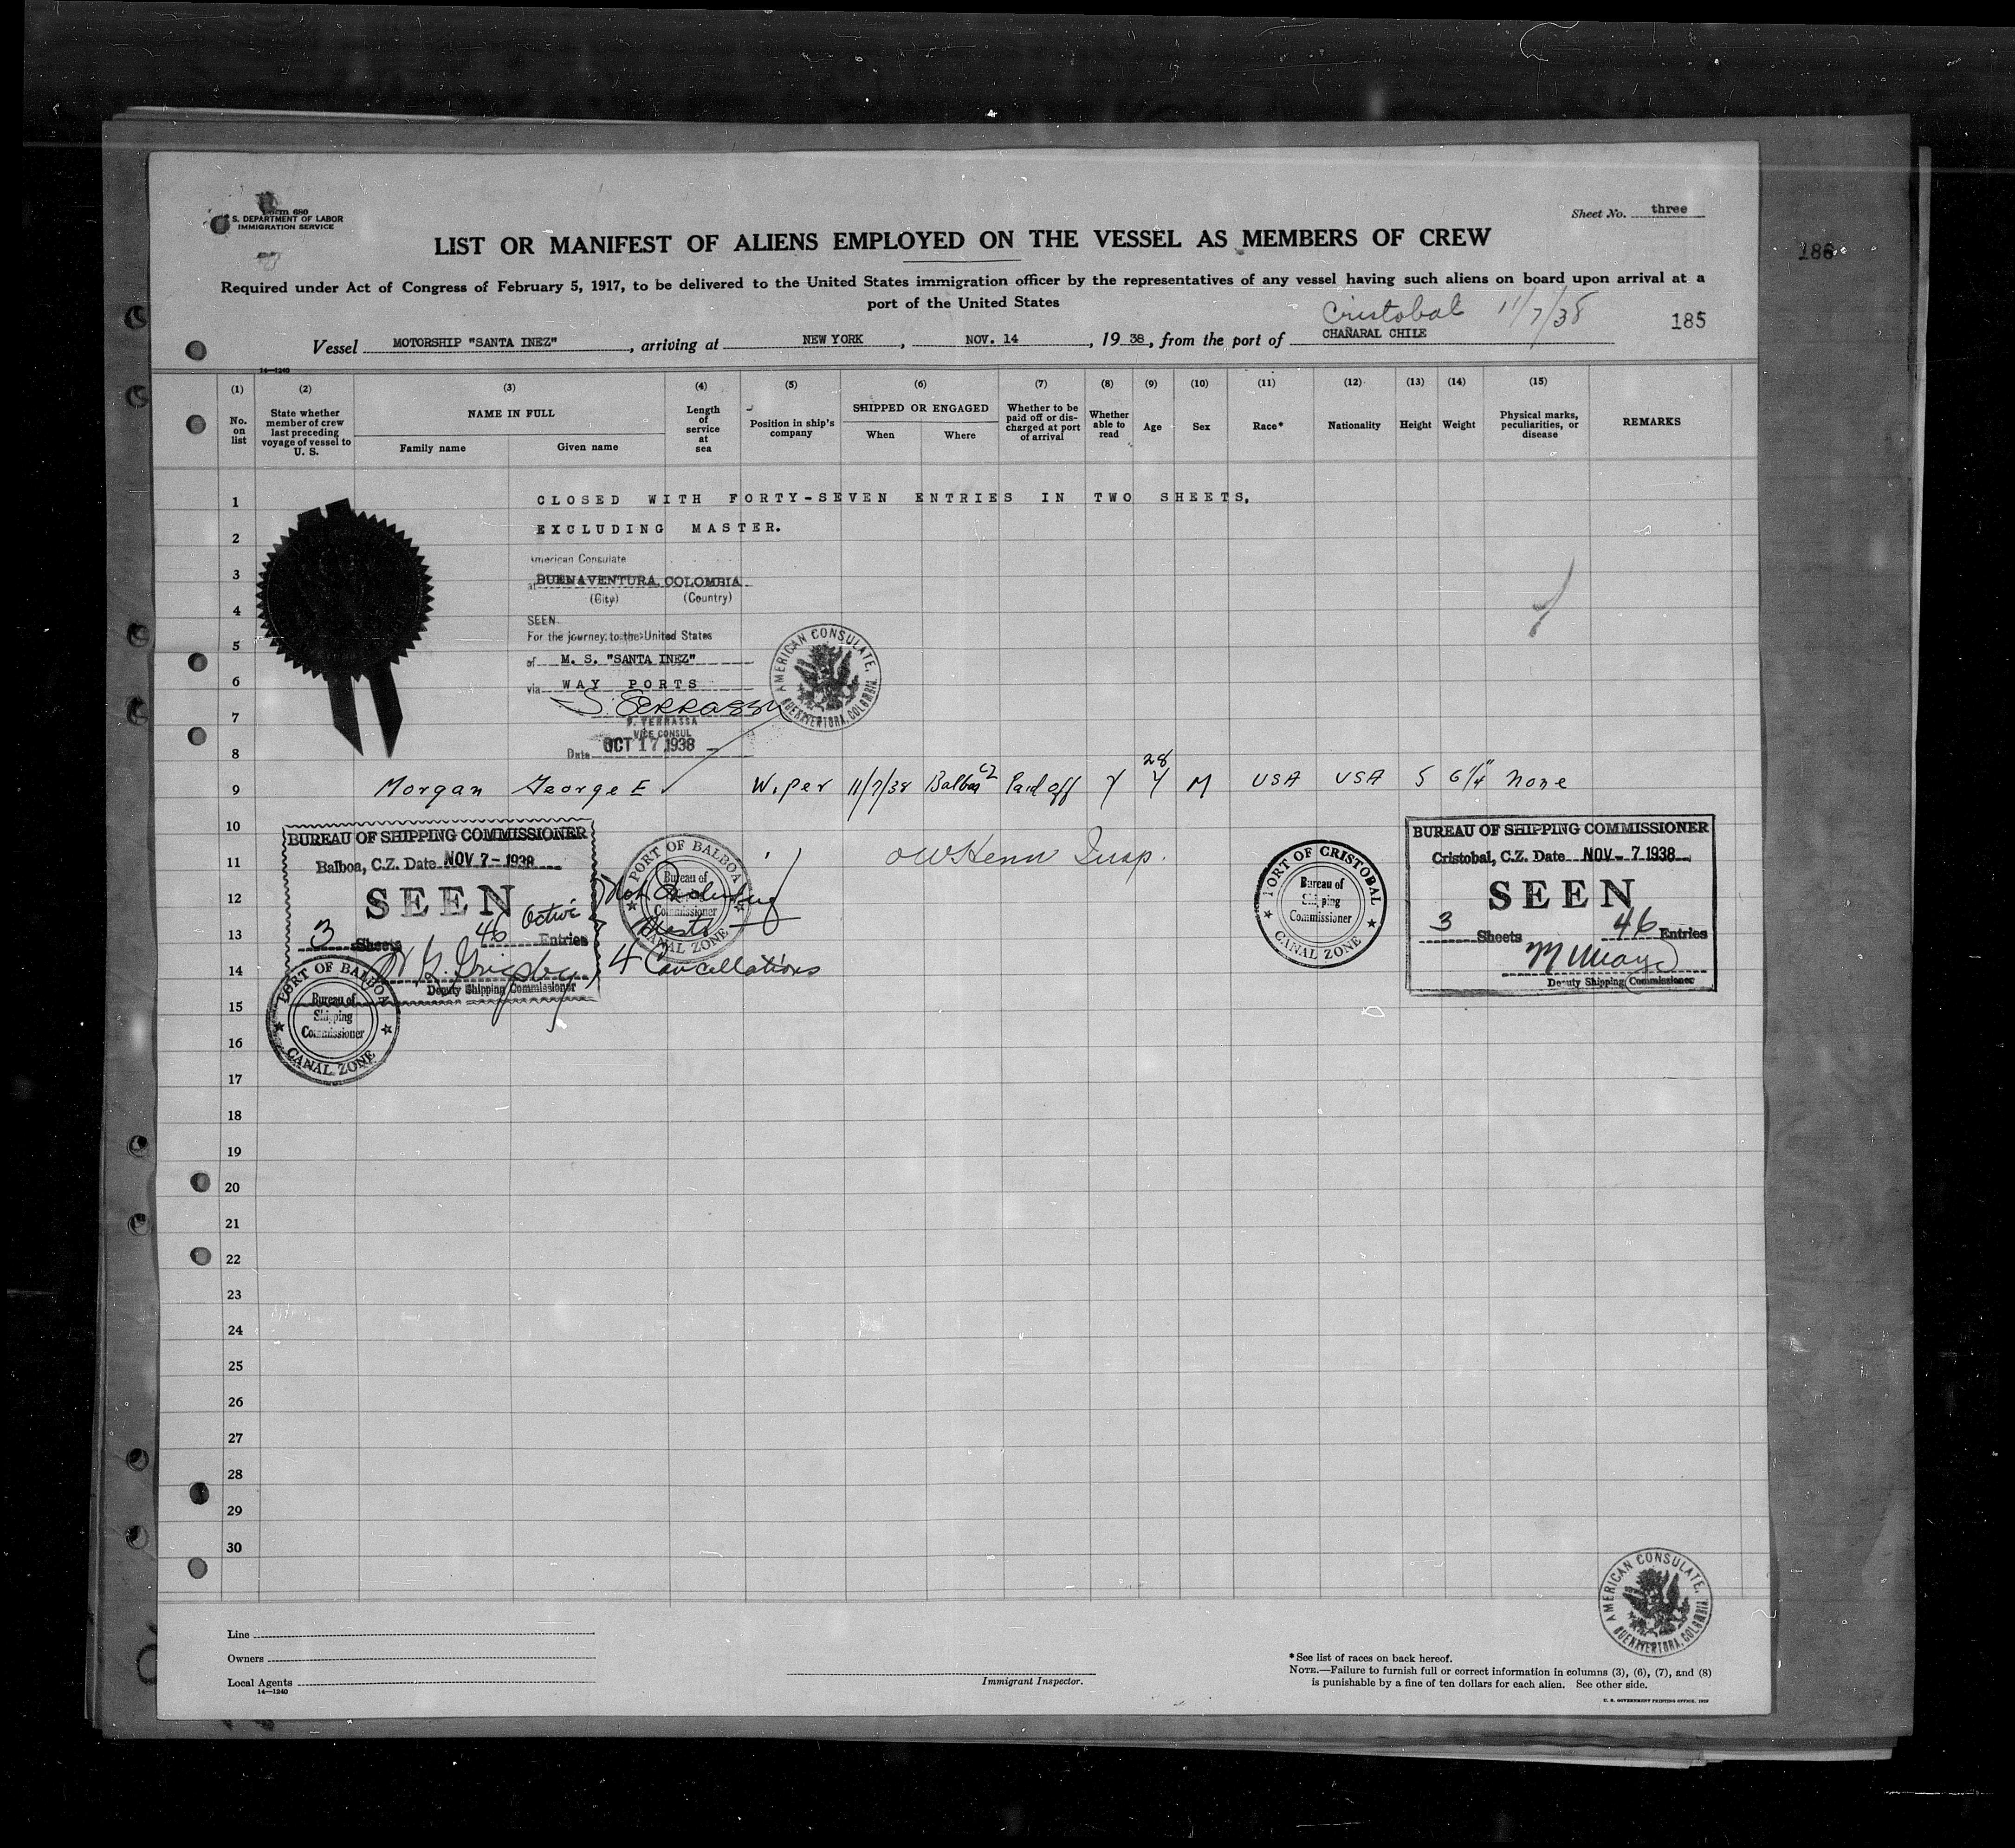 Form 680
U. S. DEPARTMENT OF LABOR
IMMIGRATION SERVICE
Sheet No. three
LIST OR MANIFEST OF ALIENS EMPLOYED ON THE VESSEL AS MEMBERS OF CREW
186
Required under Act of Congress of February 5, 1917, to be delivered to the United States immigration officer by the representatives of any vessel having such aliens on board upon arrival at a
port of the United States
Cristobal 11/7/38
185
Vessel MOTORSHIP "SANTA INEZ", arriving at NEW YORK, NOV. 14, 1938, from the port of CHAÑARAL CHILE
14—1240
(1) (2) (3) (4) (5) (6) (7) (8) (9) (10) (11) (12) (13) (14) (15)
No. on list
State whether member of crew last preceding voyage of vessel to U. S.
NAME IN FULL
Family name
Given name
Length of service at sea
Position in ship's company
SHIPPED OR ENGAGED
When
Where
Whether to be paid off or discharged at port of arrival
Whether able to read
Age
Sex
Race*
Nationality
Height
Weight
Physical marks, peculiarities, or disease
REMARKS
1 CLOSED WITH FORTY-SEVEN ENTRIES IN TWO SHEETS,
2 EXCLUDING MASTER.
American Consulate
3 at BUENAVENTURA, COLOMBIA
(City) (Country)
4 SEEN
For the journey to the United States
5
of M. S. "SANTA INEZ"
6 via WAY PORTS
S. Terrassa
7 S. TERRASSA
VICE CONSUL
8 Date OCT 17 1938
AMERICAN CONSULATE, BUENAVENTURA, COLOMBIA.
28
9 Morgan George E Wiper 11/7/38 Balboa CZ Paid off Y Y M USA USA 5 6 1/4" None
10
11
12
13
14
15
16
17
18
19
20
21
22
23
24
25
26
27
28
29
30
BUREAU OF SHIPPING COMMISSIONER
Balboa, C.Z. Date NOV 7-1938
SEEN
3 Sheets 46 Active Entries
Deputy Shipping Commissioner
PORT OF BALBOA
Bureau of
Shipping
Commissioner
CANAL ZONE
PORT OF BALBOA
Bureau of
Shipping
Commissioner
CANAL ZONE
Not Including
Master
4 Cancellations
Insp.
PORT OF CRISTOBAL
Bureau of
Shipping
Commissioner
CANAL ZONE
BUREAU OF SHIPPING COMMISSIONER
Cristobal, C.Z. Date NOV - 7 1938
SEEN
3 Sheets 46 Entries
Deputy Shipping Commissioner
AMERICAN CONSULATE, BUENAVENTURA, COLOMBIA.
Line
Owners
Local Agents
14—1240
Immigrant Inspector.
*See list of races on back hereof.
NOTE.—Failure to furnish full or correct information in columns (3), (6), (7), and (8)
is punishable by a fine of ten dollars for each alien. See other side.
U. S. GOVERNMENT PRINTING OFFICE